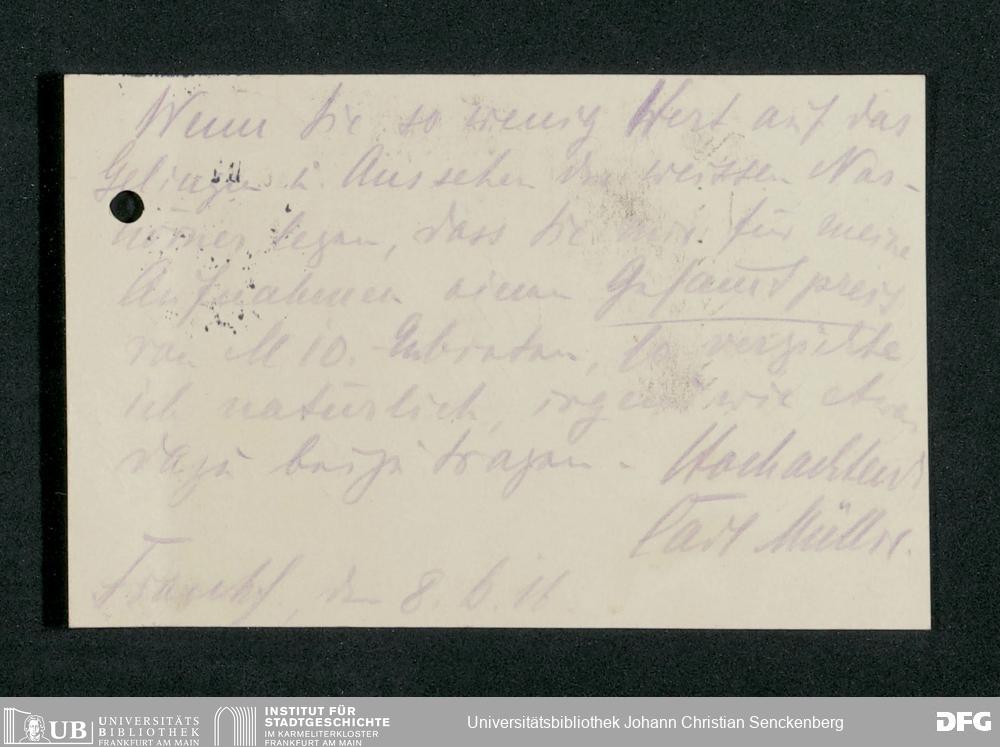 Wenn Sie so wenig Wert auf das
Gelingen u. Aussehen der weissen Nas-
hörner legen, dass Sie mir für meine
Aufnahmen einen Gesamtpreis
von M 10. anbieten, so verzichte
ich natürlich, irgendwie etwas
dazu beizutragen. Hochachtend
Carl Müller.
Frankf, den 8. 6. 16
UB UNIVERSITÄTS
BIBLIOTHEK
FRANKFURT AM MAIN
INSTITUT FÜR
STADTGESCHICHTE
IM KARMELITERKLOSTER
FRANKFURT AM MAIN
Universitätsbibliothek Johann Christian Senckenberg
DFG